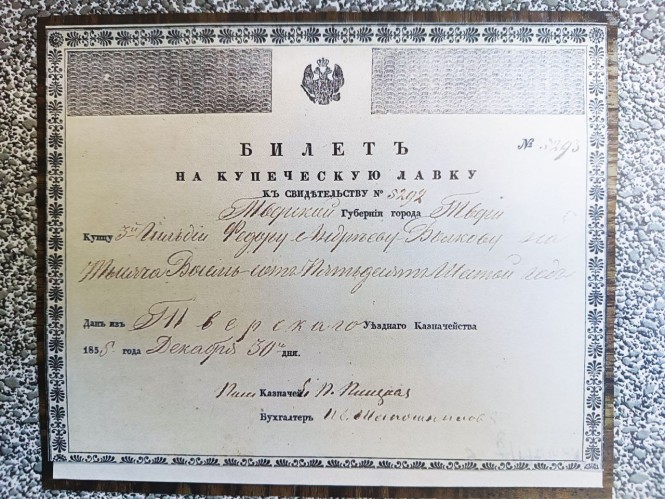 БИЛЕТЪ
№ 5293
НА КУПЕЧЕСКУЮ ЛАВКУ
КЪ СВИДѢТЕЛЬСТВУ № 5292
Тверской Губернiи города Твери
Купцу 3й Гильдiи Федору Андрееву
Тысяча Восемь-сотъ Пятьдесятъ Шестой годъ
Данъ изъ Тверскаго Уѣзднаго Казначейства
1855 года Декабря 30 дня.
Казначей
Бухгалтеръ